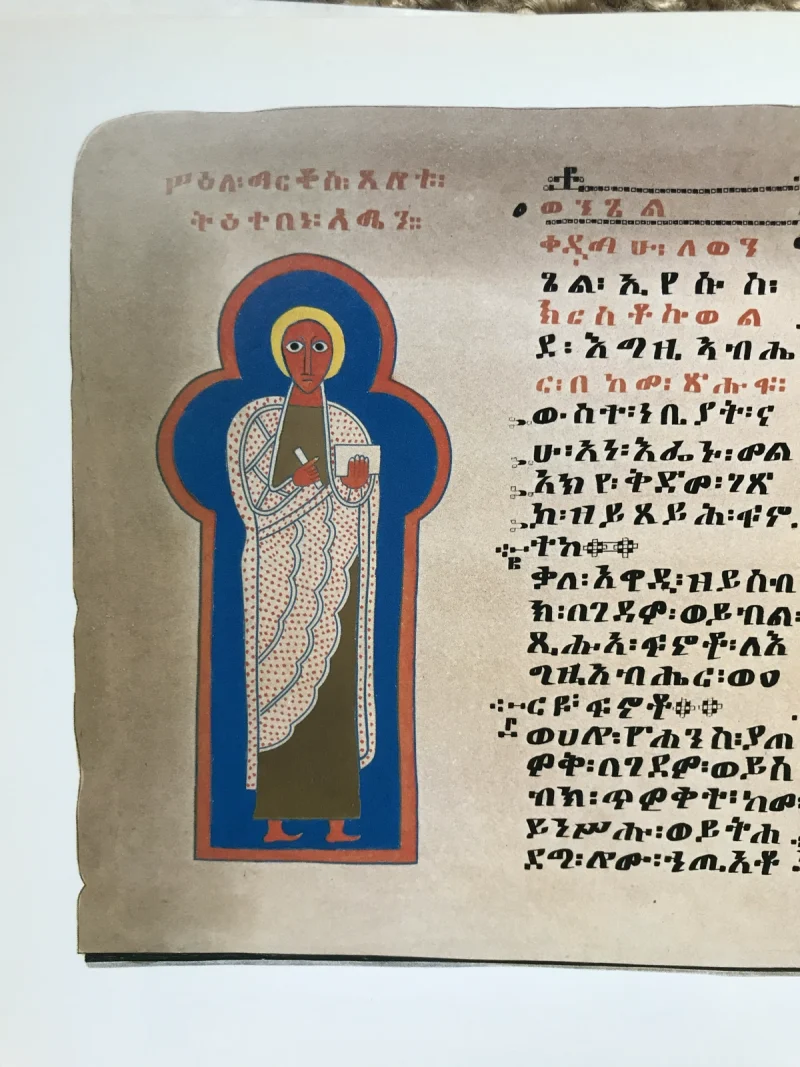 ሥዕለ፡ማርቆስ፡ጸሎተ፡፡
ትዕተበነ፡አሜን።
ወንጌል
ቀዳማሁ፡ለወን
ጌል፡ኢየሱስ፡
ክርስቶስ ወል
ደ፡እግዚአብሔ
ር፡በከመ፡ጽሑፍ፡
ውስተ፡ነቢያት፡ና
ሁ፡አነ፡እፌኑ፡መል
አክየ፡ቅድመ፡ገጽ
ከ፡ዘይጸይሕ፡ፍኖ
ተከ
ቃለ፡አዋዲ፡ዘይሰብ
ክ፡በገዳም፡ወይብል፡
ጺሑአ፡ፍኖቶ፡ለእ
ግዚአብሔር፡ወዐ
ርዩ፡ፍኖቶ
ወሀሎ፡ዮሐንስ፡ያጠ
ምቅ፡በገዳም፡ወይሰ
ብክ፡ጥምቀተ፡ከመ፡
ይነሥሑ፡ወይትሐ
ደግ፡ሎሙ፡ኀጢአቶ